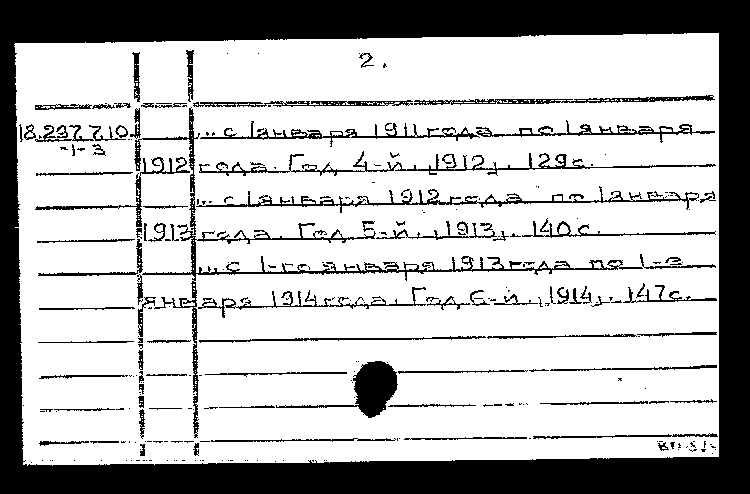 2.
18.237.7.10. ... с 1 января 1911 года по 1 января
-1-3
1912 года. Год 4-й, [1912]. 129 с.
... с 1 января 1912 года по 1 января
1913 года. Год 5-й, [1913]. 140 с.
... с 1-го января 1913 года по 1-е
января 1914 года. Год 6-й, [1914]. 147 с.